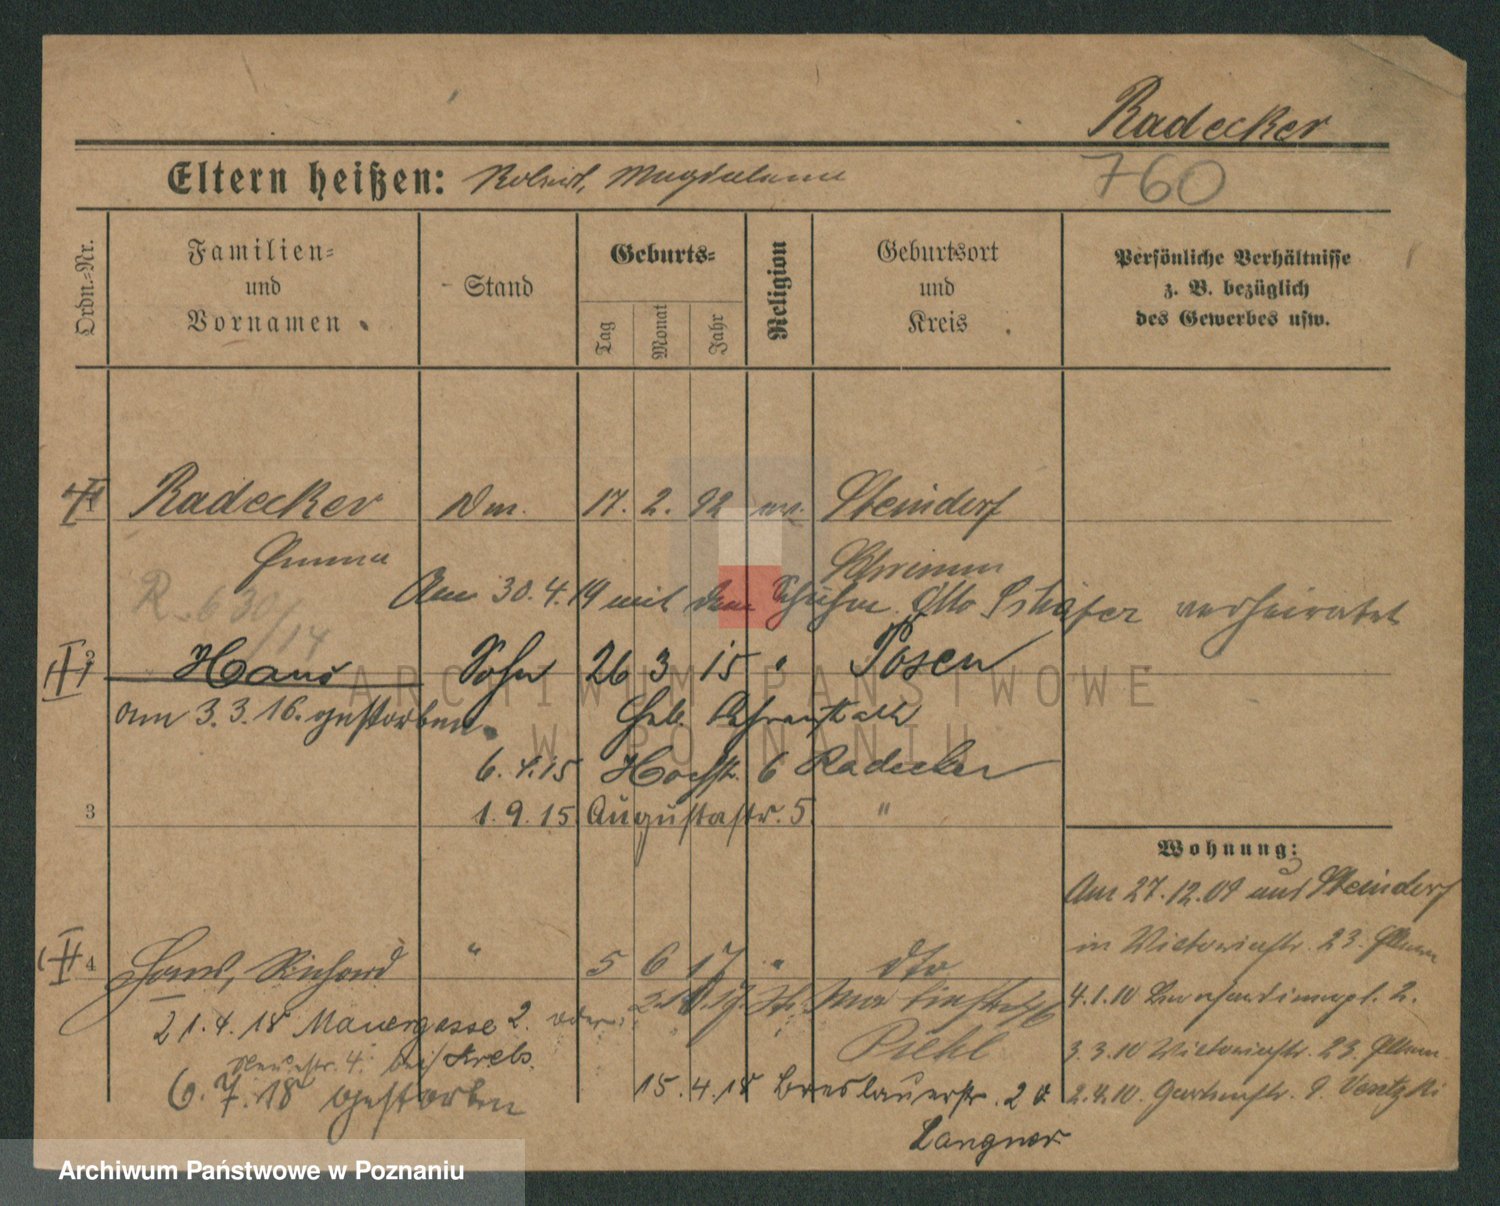 Radecker
760
Eltern heißen: Robert, Magdalena
Ordn.-Nr.
Familien-
und
Vornamen
Stand
Geburts-
Tag
Monat
Jahr
Religion
Geburtsort
und
Kreis
Persönliche Verhältnisse
z. B. bezüglich
des Gewerbes usw.
1 Radecker 17. 2. 92 ev. Steindorf
Emma Schrimm
R. 630/14
Am 30.4.19 mit dem Schuhm. Otto Schäfer verheiratet
2 Hans Sohn 26 3 15 " Posen
am 3.3.16. gestorben.
6.4.15 Hochstr. 6 Radecker
3
1.9.15. Augustastr. 5. "
Wohnung:
Am 27.12.09 aus Steindorf
in Victoriastr. 23.
4 Hans, Richard " 5 6 17 " dto
4.1.10 2.
21.4.18 Mauergasse 2. oder
Piehl
3.3.10 Victoriastr. 23.
4. bei Krebs.
6.7.18 gestorben
15.4.18 Breslauerstr. 20
2.4.10. Gartenstr.
Langner
ARCHIWUM PAŃSTWOWE
W POZNANIU
Archiwum Państwowe w Poznaniu